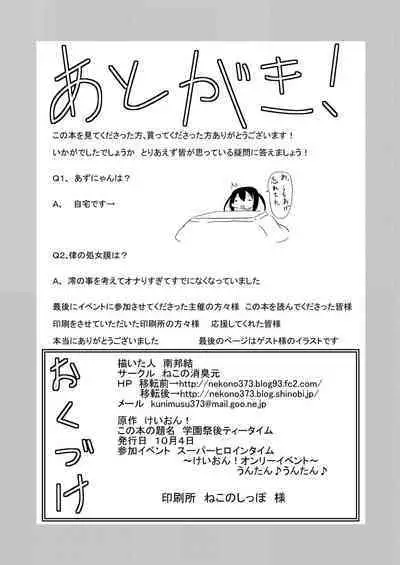 あとがき!
この本を見てくださった方、買ってくださった方ありがとうございます!
いかがでしたでしょうか とりあえず皆が思っている疑問に答えましょう!
Q1、あずにゃんは?
A、 自宅です→
最後にイベントに参加させてくださった主催の方々様 この本を読んでくださった皆様
印刷をさせていただいた印刷所の方々様 応援してくれた皆様
本当にありがとうございました 最後のページはゲスト様のイラストです
おくづけ
描いた人 南邦結
サークル ねこの消臭元
HP 移転前→http://nekono373.blog93.fc2.com/
移転後→http://nekono373.blog.shinobi.jp/
メール kunimusu373@mail.goo.ne.jp
原作 けいおん!
この本の題名 学園祭後ティータイム
発行日 10月4日
参加イベント スーパーヒロインタイム
~けいおん!オンリーイベント~
うんたん♪うんたん♪
印刷所 ねこのしっぽ 様